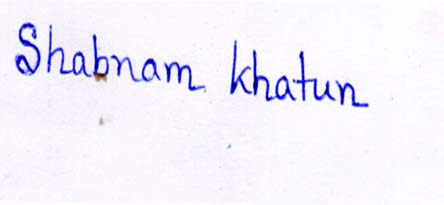 Shabnam khatun